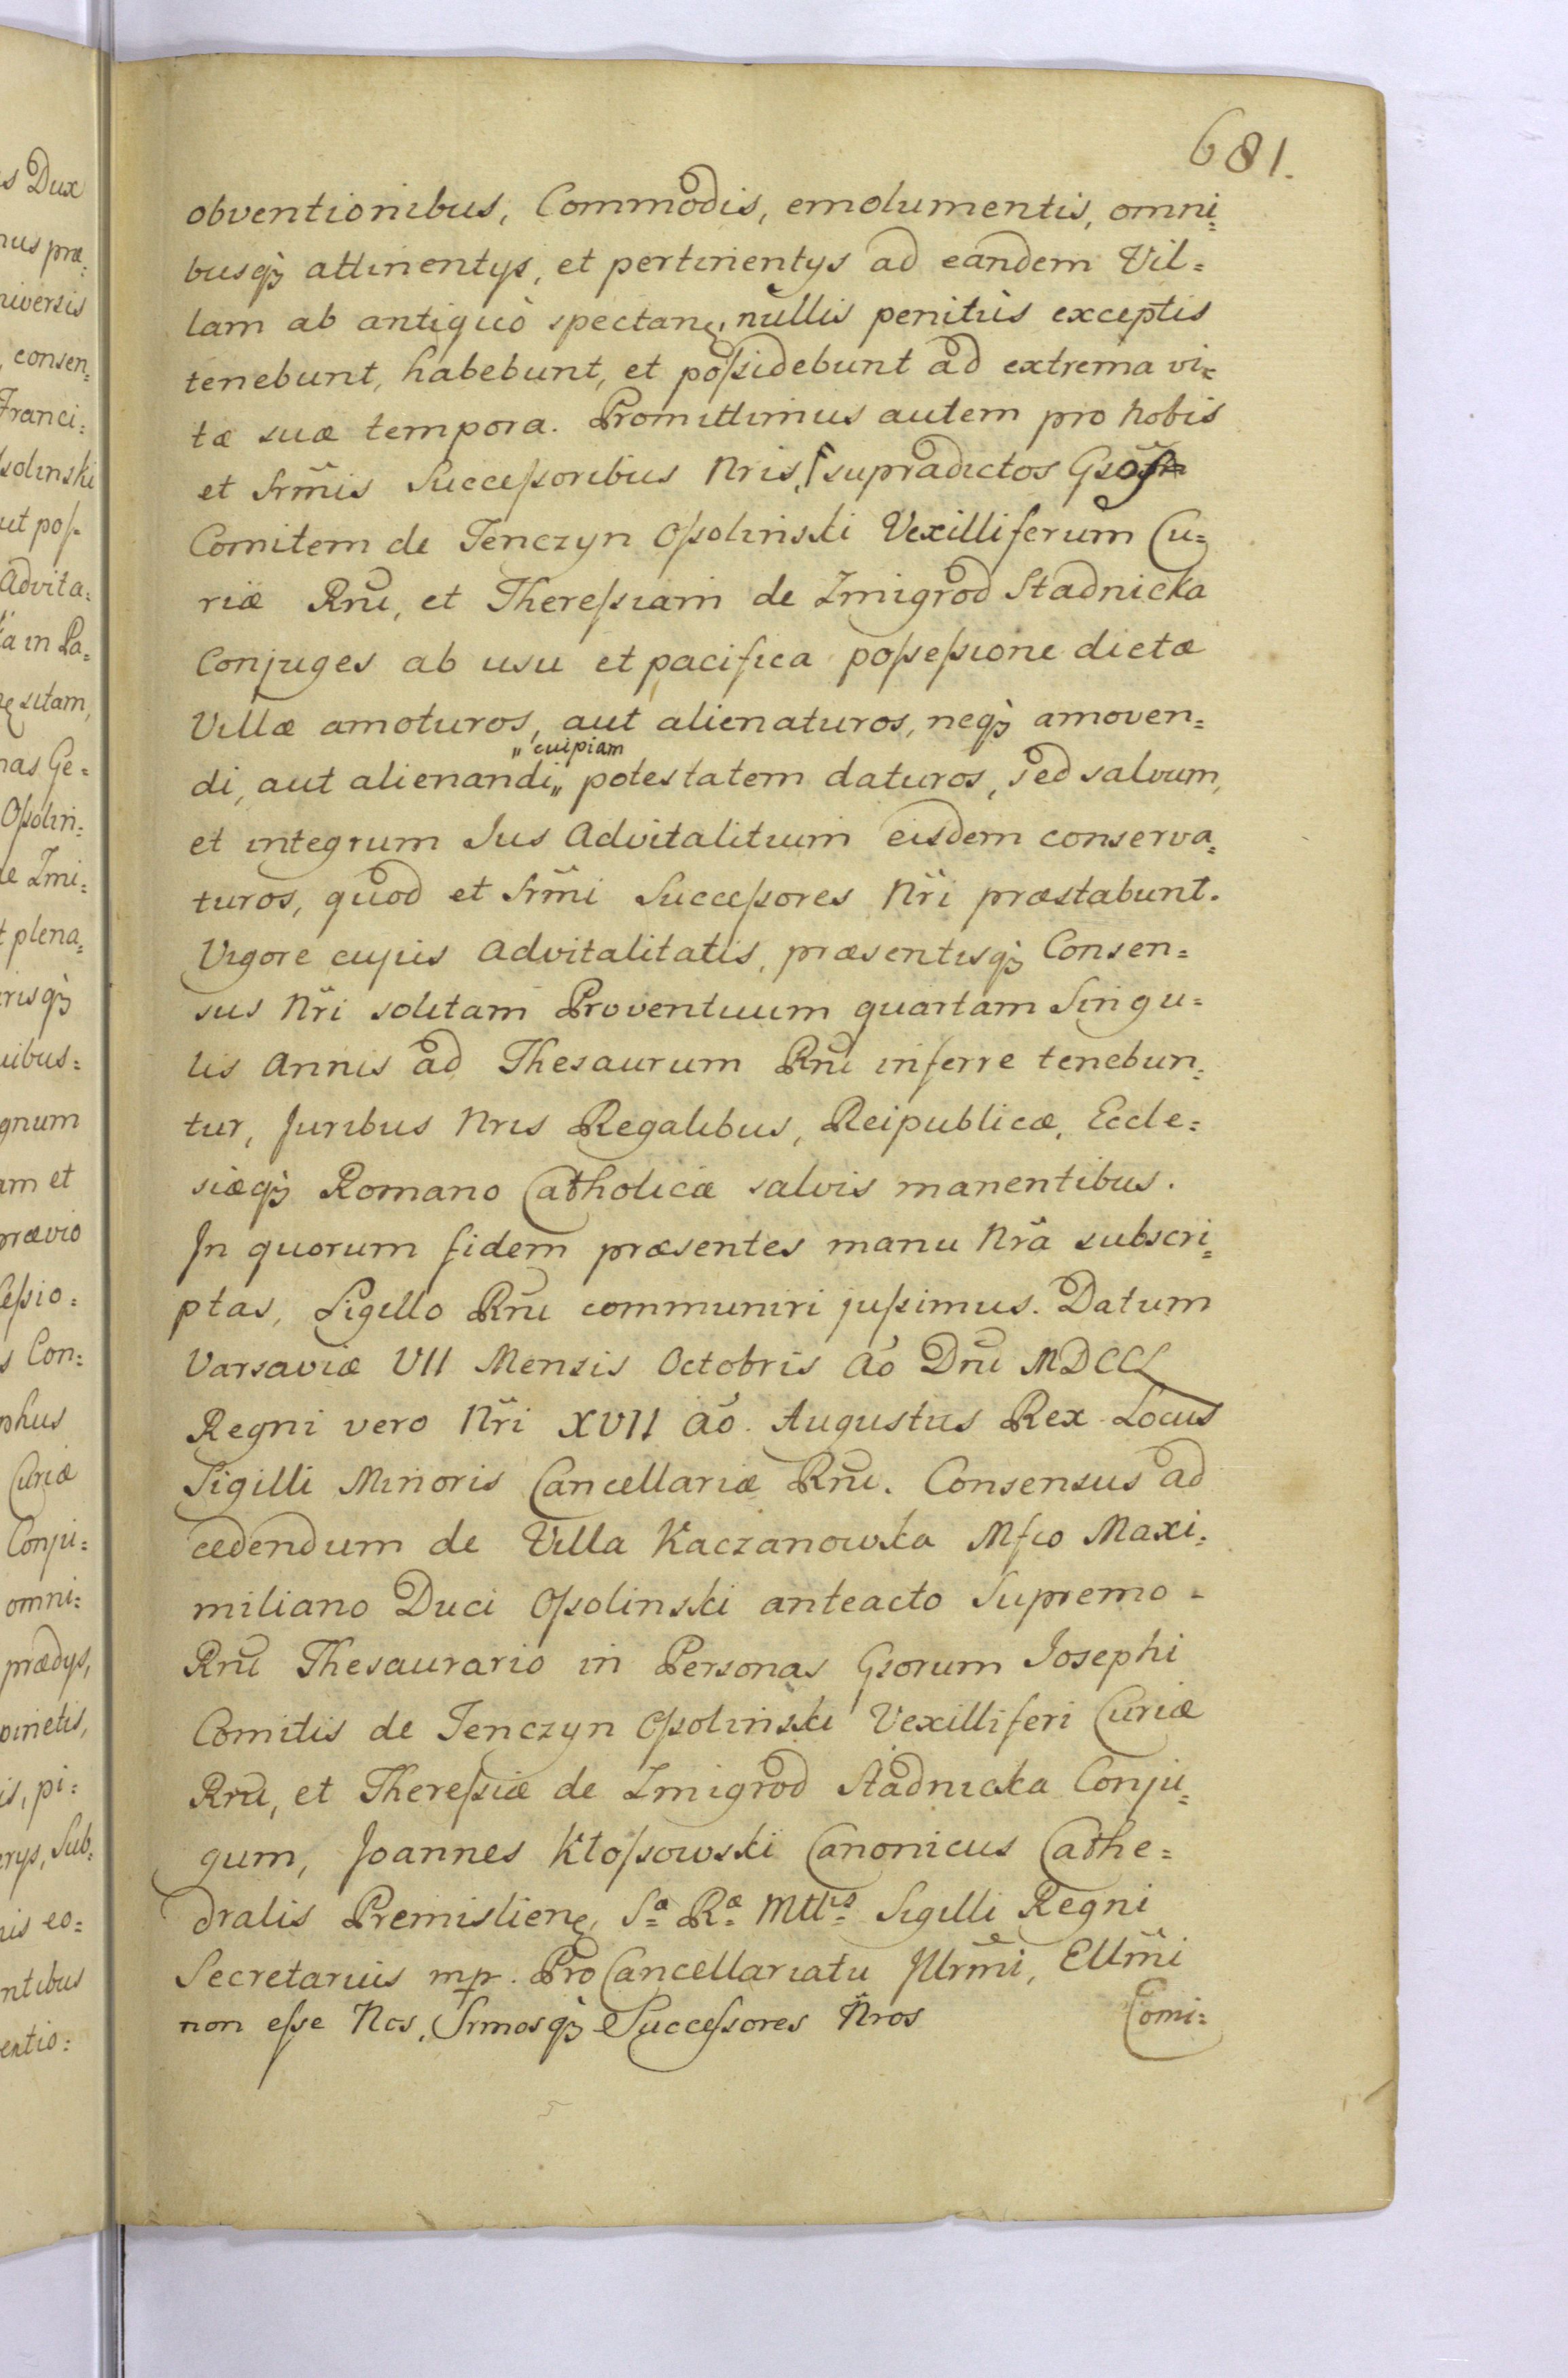 681.
obventionibus, Commodis, emolumentis, omni=
busqꝫ attinentys, et pertinentys ad eandem Vil=
lam ab antiquò spectanꝭ, nullis penitùs exceptis
tenebunt, habebunt, et poſsidebunt ad extrema vi=
tæ suæ tempora. Promittimus autem pro Nobis
et Srm̃is Succeſsoribus Nris, ſ supradictos
Comitem de Tenczyn Oſsolinski Vexilliferum Cu=
riæ Rñi, et Thereſsiam de Zmigrod Stadnicka
Conjuges ab usu et pacifica poſseſsione dictæ
Villæ amoturos, aut alienaturos, neqꝫ amoven=
„cuipiam
di, aut alienandi„ potestatem daturos, sed salvum,
et integrum Jus Advitalitium eisdem conserva=
turos, quod et Srm̃i Succeſsores Nr̃i præstabunt.
Vigore cujus Advitalitatis, præsentisqꝫ Consen=
sus Nr̃i solitam Proventuum quartam Singu=
lis Annis ad Thesaurum Rñi inferre tenebun=
tur, Juribus Nris Regalibus, Reipublicæ, Eccle=
siæqꝫ Romano Catholicæ salvis manentibus.
In quorum fidem præsentes manu Nr̃a subscri=
ptas, Sigillo Rñi communiri juſsimus. Datum
Varsaviæ VII Mensis Octobris Aõ Dñi MDCCL
Regni vero Nr̃i XVII aõ. Augustus Rex Locus
Sigilli Minoris Cancellariæ Rñi. Consensus ad
cedendum de Villa Kaczanowka Mfco Maxi=
miliano Duci Oſsolinski anteacto Supremo =
Rñi Thesaurario in Personas Gsorum Josephi
Comitis de Tenczyn Oſsolinski Vexilliferi Curiæ
Rñi, et Thereſsiæ de Zmigrod Stadnicka Conju=
gum, Joannes Kłoſsowski Canonicus Cathe=
dralis Premislienꝭ, Sæ Ræ Mttis Sigilli Regni
Secretarius mp. Pro Cancellariatu Jllrm̃i, Ellm̃i
non eſse Nos, Srmosqꝫ Succeſsores Nros
Comi=